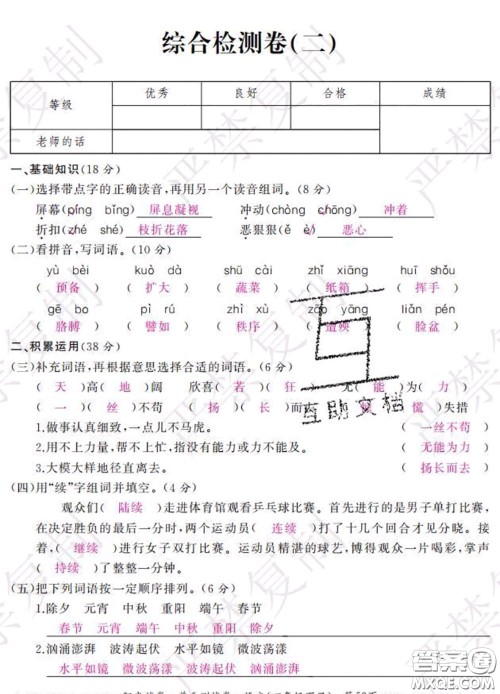 综合检测卷(二)
等级 优秀 良好 合格 成绩
老师的话
一、基础知识(18 分)
(一)选择带点字的正确读音,再用另一个读音组词。(8 分)
屏幕(píng bǐng) 屏息凝视 冲动(chòng chōng) 冲着
折扣(zhé shé) 枝折花落 恶狠狠(ě è) 恶心
(二)看拼音,写词语。(10 分)
yù bèi kuò dà shū cài zhǐ xiāng huī shǒu
(预备) (扩大) (蔬菜) (纸箱) (挥手)
gē bo pì rú zhì xù zāo yāng liǎn pén
(胳膊) (譬如) (秩序) (遭殃) (脸盆)
二、积累运用(38 分)
(三)补充词语,再根据意思选择合适的词语。(6 分)
(天)高(地)阔 欣喜(若)(狂) 无(能)为(力)
(一)(丝)不苟 (扬)(长)而 (慌)失措
1.做事认真细致,一点儿不马虎。 (一丝不苟)
2.用不上力量,帮不上忙,指没有能力或力不能及。 (无能为力)
3.大模大样地径直离去。 (扬长而去)
(四)用“续”字组词并填空。(4 分)
观众们(陆续)走进体育馆观看乒乓球比赛。首先进行的是男子单打比赛,
在决定胜负的最后一局时,两个运动员(连续)打了十几个回合才见分晓。接
着,(继续)进行女子双打比赛。运动员精湛的球艺,博得观众一片喝彩,掌声
(持续)了整整一分钟。
(五)把下列词语按一定顺序排列。(6 分)
1.除夕 元宵 中秋 重阳 端午 春节
春节 元宵 端午 中秋 重阳 除夕
2.汹涌澎湃 波涛起伏 水平如镜 微波荡漾
水平如镜 微波荡漾 波涛起伏 汹涌澎湃
严禁复制
互助文档
答案圈
MXQE.COM